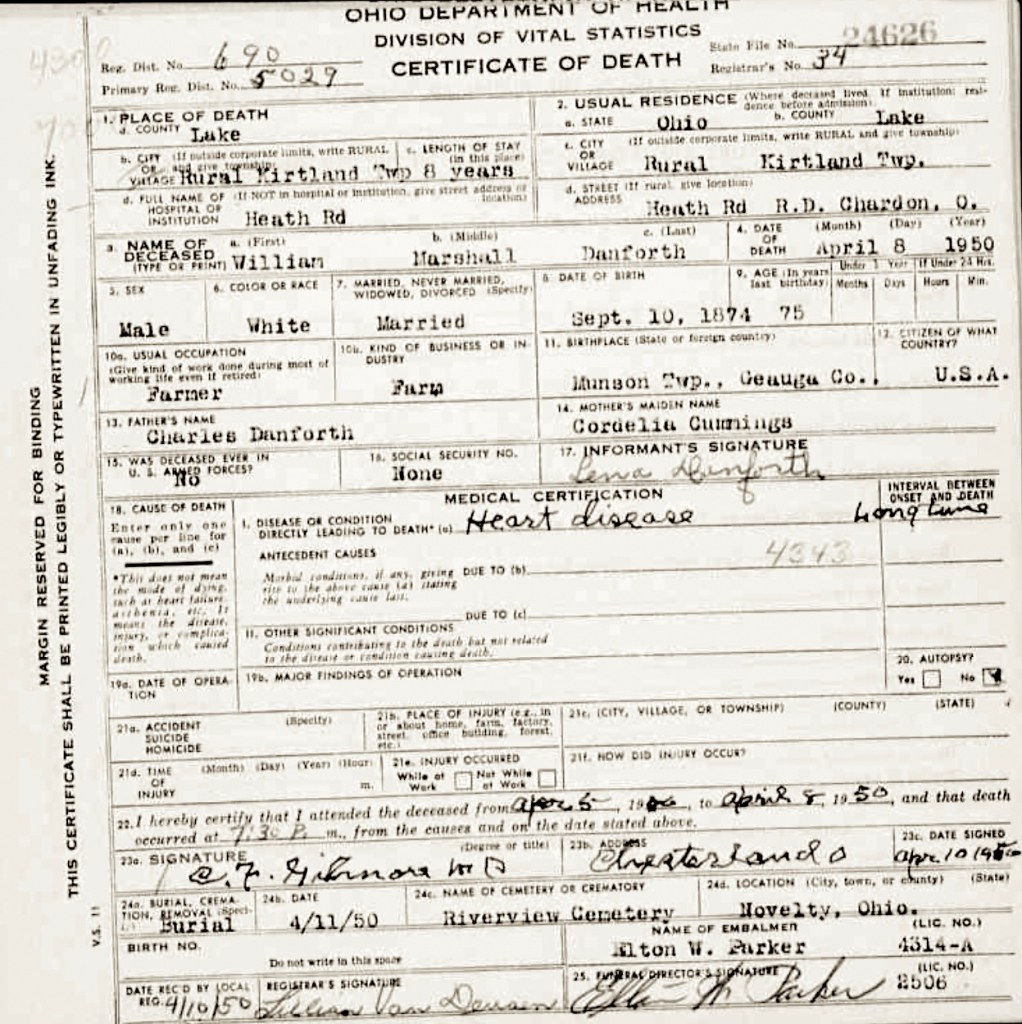 OHIO DEPARTMENT OF HEALTH
DIVISION OF VITAL STATISTICS
CERTIFICATE OF DEATH
Reg. Dist. No. 690
Primary Reg. Dist. No. 5029
State File No. 24626
Registrar's No. 34
MARGIN RESERVED FOR BINDING
THIS CERTIFICATE SHALL BE PRINTED LEGIBLY OR TYPEWRITTEN IN UNFADING INK.
V.S. 11
1. PLACE OF DEATH
a. COUNTY Lake
b. CITY (If outside corporate limits, write RURAL
OR and give township)
VILLAGE Rural Kirtland Twp
c. LENGTH OF STAY
(in this place)
8 years
d. FULL NAME OF (If NOT in hospital or institution, give street address or
location)
HOSPITAL OR
INSTITUTION Heath Rd
2. USUAL RESIDENCE (Where deceased lived. If institution: resi-
dence before admission)
a. STATE Ohio b. COUNTY Lake
c. CITY (If outside corporate limits, write RURAL and give township)
OR
VILLAGE Rural Kirtland Twp.
d. STREET (If rural, give location)
ADDRESS Heath Rd R.D. Chardon, O.
3. NAME OF
DECEASED
(TYPE OR PRINT)
a. (First) b. (Middle) c. (Last)
William Marshall Danforth
4. DATE
OF
DEATH
(Month) (Day) (Year)
April 8 1950
5. SEX
Male
6. COLOR OR RACE
White
7. MARRIED, NEVER MARRIED,
WIDOWED, DIVORCED (Specify)
Married
8. DATE OF BIRTH
Sept. 10, 1874
9. AGE (In years
last birthday)
75
Under 1 Year If Under 24 Hrs.
Months Days Hours Min.
10a. USUAL OCCUPATION
(Give kind of work done during most of
working life even if retired)
Farmer
10b. KIND OF BUSINESS OR IN-
DUSTRY
Farm
11. BIRTHPLACE (State or foreign country)
Munson Twp., Geauga Co.,
12. CITIZEN OF WHAT
COUNTRY?
U.S.A.
13. FATHER'S NAME
Charles Danforth
14. MOTHER'S MAIDEN NAME
Cordelia Cummings
15. WAS DECEASED EVER IN
U. S. ARMED FORCES?
No
16. SOCIAL SECURITY NO.
None
17. INFORMANT'S SIGNATURE
Lena Danforth
18. CAUSE OF DEATH
Enter only one
cause per line for
(a), (b), and (c)
*This does not mean
the mode of dying,
such as heart failure,
asthenia, etc. It
means the disease,
injury, or complica-
tion which caused
death.
MEDICAL CERTIFICATION
I. DISEASE OR CONDITION
DIRECTLY LEADING TO DEATH* (a) Heart disease
INTERVAL BETWEEN
ONSET AND DEATH
Long time
ANTECEDENT CAUSES
4343
Morbid conditions, if any, giving DUE TO (b)
rise to the above cause (a) stating
the underlying cause last.
DUE TO (c)
II. OTHER SIGNIFICANT CONDITIONS
Conditions contributing to the death but not related
to the disease or condition causing death.
19a. DATE OF OPERA-
TION
19b. MAJOR FINDINGS OF OPERATION
20. AUTOPSY?
Yes No
21a. ACCIDENT (Specify)
SUICIDE
HOMICIDE
21b. PLACE OF INJURY (e.g., in
or about home, farm, factory,
street, office building, forest,
etc.)
21c. (CITY, VILLAGE, OR TOWNSHIP) (COUNTY) (STATE)
21d. TIME (Month) (Day) (Year) (Hour)
OF
INJURY m.
21e. INJURY OCCURRED
While at Not While
Work at Work
21f. HOW DID INJURY OCCUR?
22. I hereby certify that I attended the deceased from Apr 5, 1950, to April 8, 1950, and that death
occurred at 7:30 P. m., from the causes and on the date stated above.
23a. SIGNATURE (Degree or title)
C. F. Gilmore M D
23b. ADDRESS
Chesterland O
23c. DATE SIGNED
Apr 10 1950
24a. BURIAL, CREMA-
TION, REMOVAL (Speci-
fy)
Burial
24b. DATE
4/11/50
24c. NAME OF CEMETERY OR CREMATORY
Riverview Cemetery
24d. LOCATION (City, town, or county) (State)
Novelty, Ohio.
BIRTH NO.
Do not write in this space
NAME OF EMBALMER (LIC. NO.)
Elton W. Parker 4314-A
DATE REC'D BY LOCAL
REG. 4/10/50
REGISTRAR'S SIGNATURE
Lillian Van Deusen
25. FUNERAL DIRECTOR'S SIGNATURE (LIC. NO.)
Elton W Parker 2506